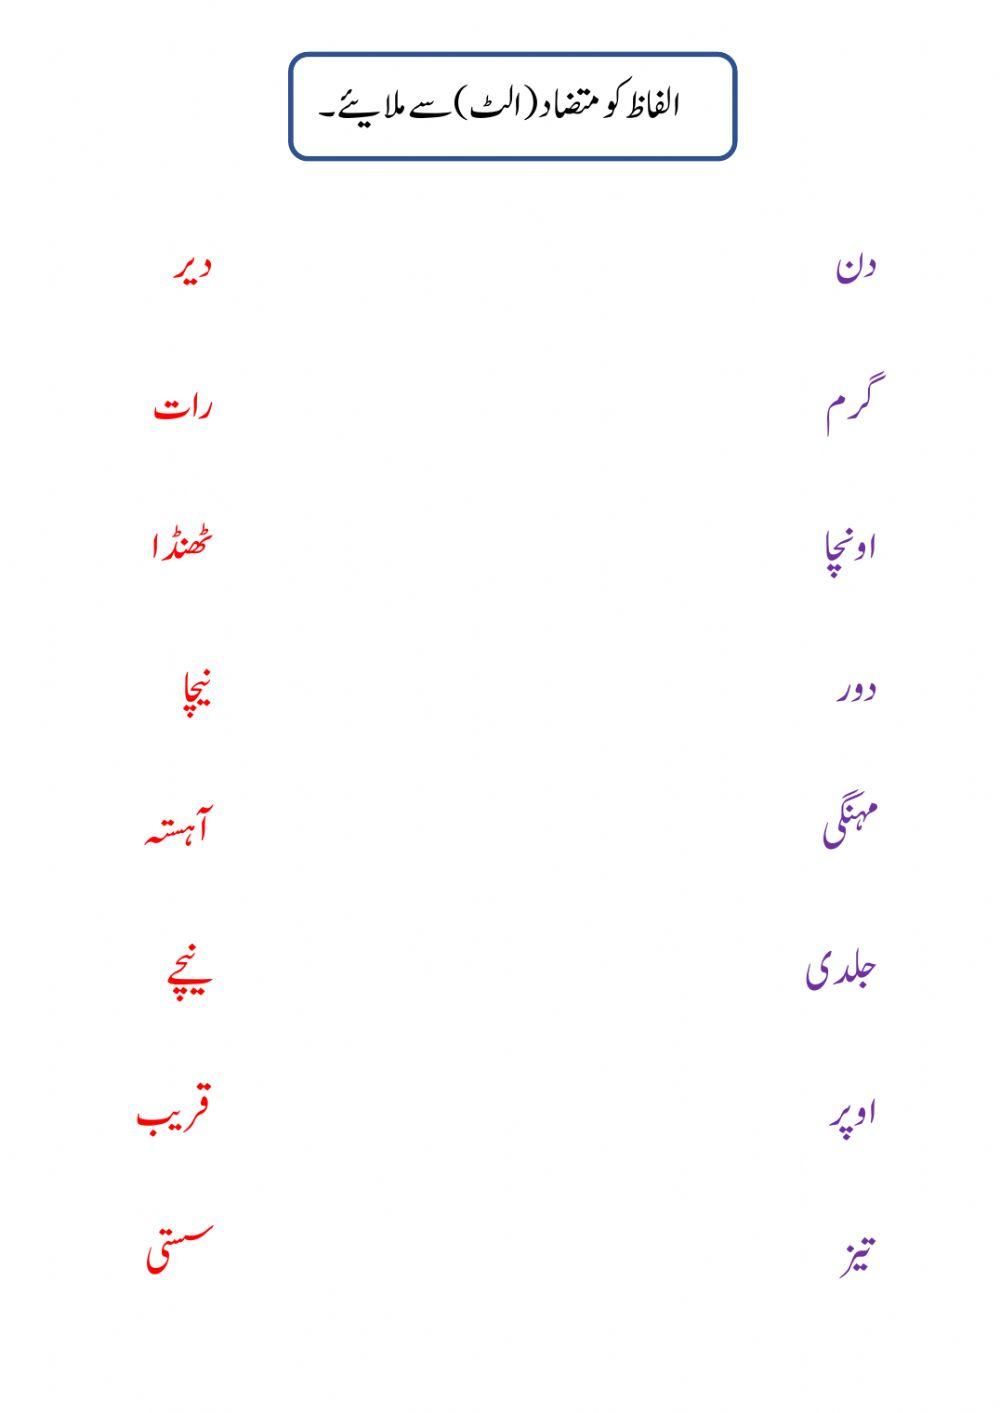 الفاظ کو متضاد(الٹ)سے ملایئے۔
دن دیر
گرم رات
اونچا ٹھنڈا
دور نیچا
مہنگی آہستہ
جلدی نیچے
اوپر قریب
تیز سستی